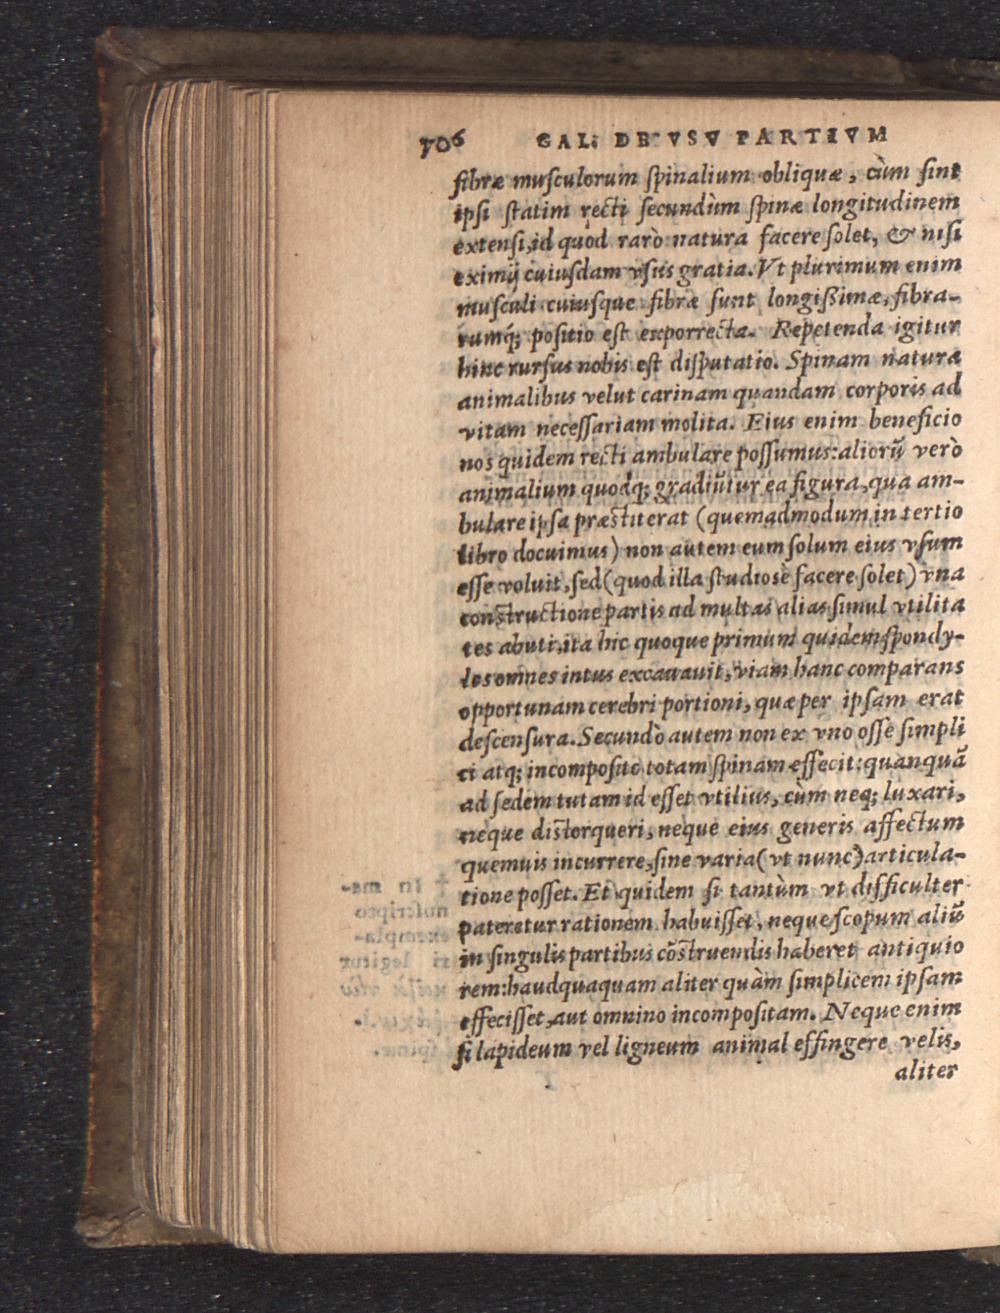 706 GAL. DE VSV PARTIVM
fibræ musculorum spinalium obliquæ, cùm sint
ipsi statim recti secundùm spinæ longitudinem
extensi, id quod rarò natura facere solet, & nisi
eximij cuiusdam vsus gratia. Vt plurimum enim
musculi cuiusque fibræ sunt longißimæ, fibra-
rumq́; positio est exporrecta. Repetenda igitur
hinc rursus nobis est disputatio. Spinam natura
animalibus velut carinam quandam corporis ad
vitam necessariam molita. Eius enim beneficio
nos quidem recti ambulare possumus: aliorũ verò
animalium quodq; gradiũtur ea figura, qua am-
bulare ipsa præstiterat (quemadmodum in tertio
libro docuimus) non autem eum solum eius vsum
esse voluit, sed (quod illa studiosè facere solet) vna
constructione partis ad multas alias simul vtilita
tes abuti, ita hic quoque primum quidem spondy-
los omnes intus excauauit, viam hanc comparans
opportunam cerebri portioni, quæ per ipsam erat
descensura. Secundò autem non ex vno osse simpli
ci atq; incomposito totam spinam effecit: quanquã
ad sedem tutam id esset vtilius, cùm neq; luxari,
neque distorqueri, neque eius generis affectum
quemuis incurrere, sine varia (vt nunc) articula-
tione posset. Et quidem si tantùm vt difficulter
pateretur rationem habuisset, neque scopum aliũ
in singulis partibus cõstruendis haberet antiquio
rem: haudquaquam aliter quàm simplicem ipsam
effecisset, aut omnino incompositam. Neque enim
si lapideum vel ligneum animal effingere velis,
aliter